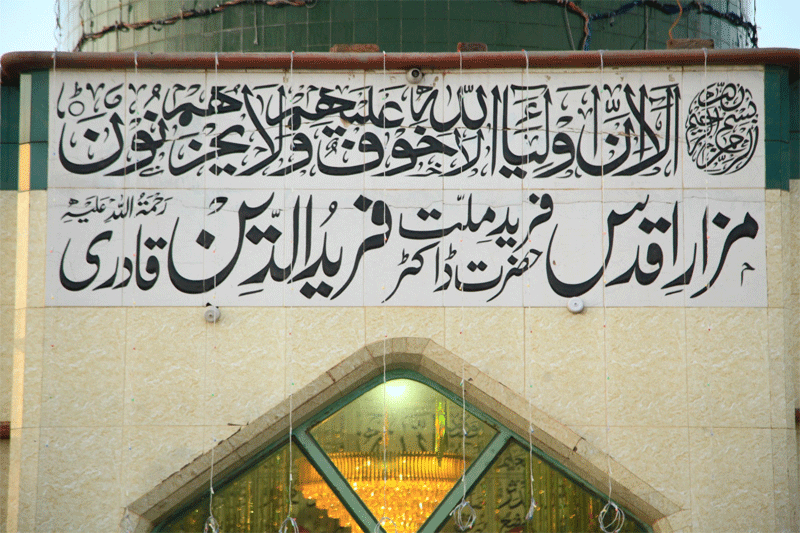 بسم الله الرحمن الرحيم
الا ان اولياء الله لا خوف عليهم ولا هم يحزنون
مزارِ اقدس فریدِ ملّت حضرت ڈاکٹر فریدُ الدّین قادری رحمۃ اللہ علیہ